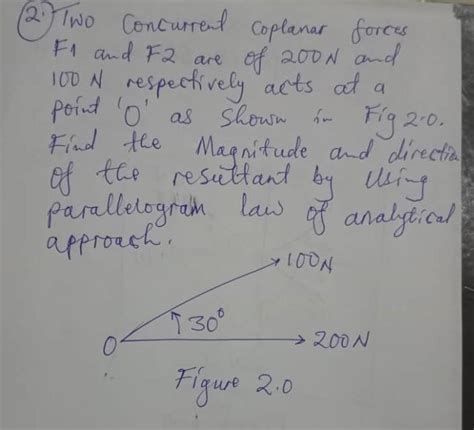 2. Two Concurrent coplanar forces
F1 and F2 are of 200N and
100 N respectively acts at a
point 'O' as shown in Fig 2.0.
Find the Magnitude and direction
of the resultant by Using
parallelogram law of analytical
approach.
100N
30°
O
200N
Figure 2.0